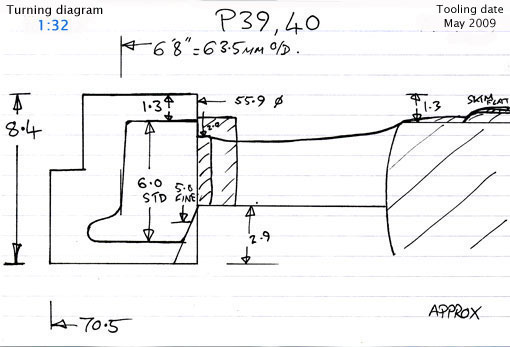 Turning diagram
1:32
P39,40
Tooling date
May 2009
6'8"=63.5MM O/D.
1.3
55.9 Ø
1.3
SKIM FLAT
8.4
2.0
6.0
STD
5.0
FINE
2.9
70.5
APPROX